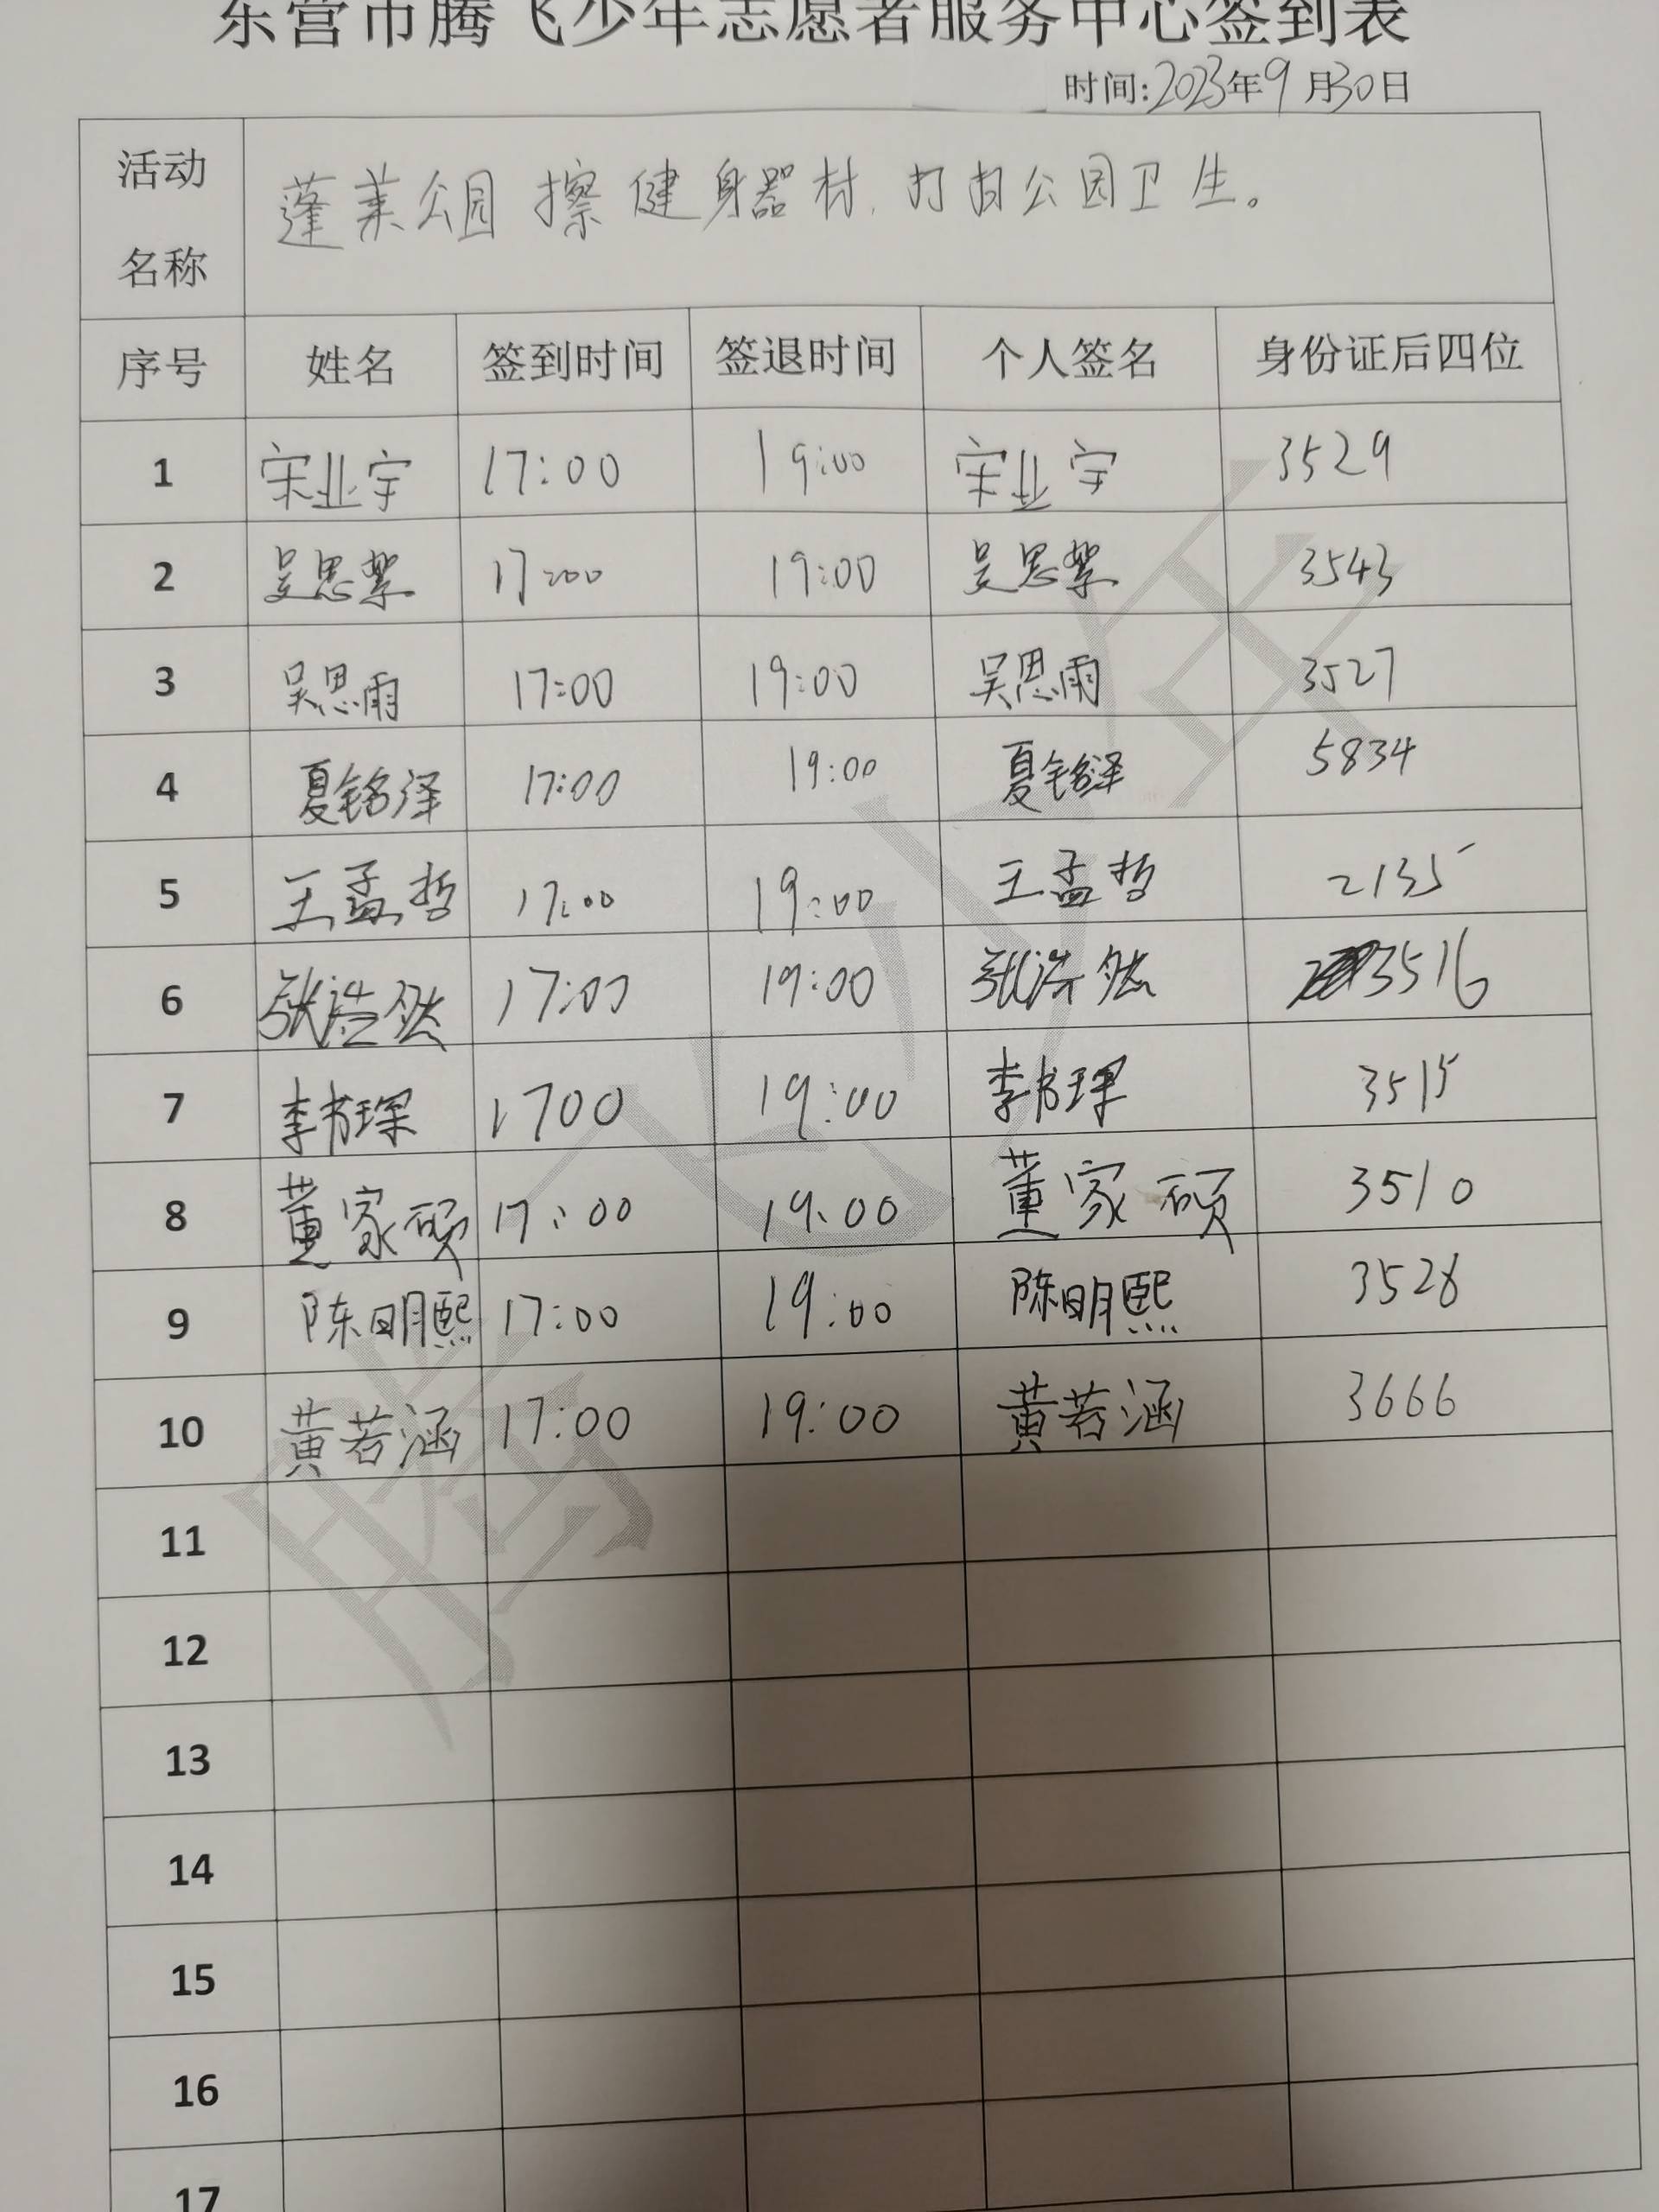 东营市腾飞少年志愿者服务中心签到表
时间:2023年9月30日
活动名称 蓬莱公园 擦健身器材,打扫公园卫生。
序号 姓名 签到时间 签退时间 个人签名 身份证后四位
1 宋业宇 17:00 19:00 宋业宇 3529
2 吴思絮 17:00 19:00 吴思絮 3543
3 吴思雨 17:00 19:00 吴思雨 3527
4 夏铭泽 17:00 19:00 夏铭泽 5834
5 王孟哲 17:00 19:00 王孟哲 2135
6 张浩然 17:00 19:00 张浩然 3516
7 李书琛 1700 19:00 李书琛 3515
8 董家硕 17:00 19:00 董家硕 3510
9 陈明熙 17:00 19:00 陈明熙 3528
10 黄若涵 17:00 19:00 黄若涵 3666
11
12
13
14
15
16
17
腾飞少年